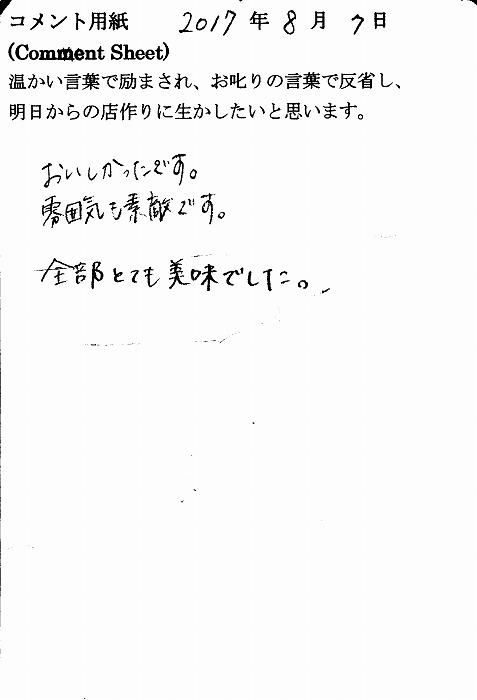 コメント用紙 2017年8月7日
(Comment Sheet)
温かい言葉で励まされ、お叱りの言葉で反省し、
明日からの店作りに生かしたいと思います。
おいしかったです。
雰囲気も素敵です。
全部とても美味でした。